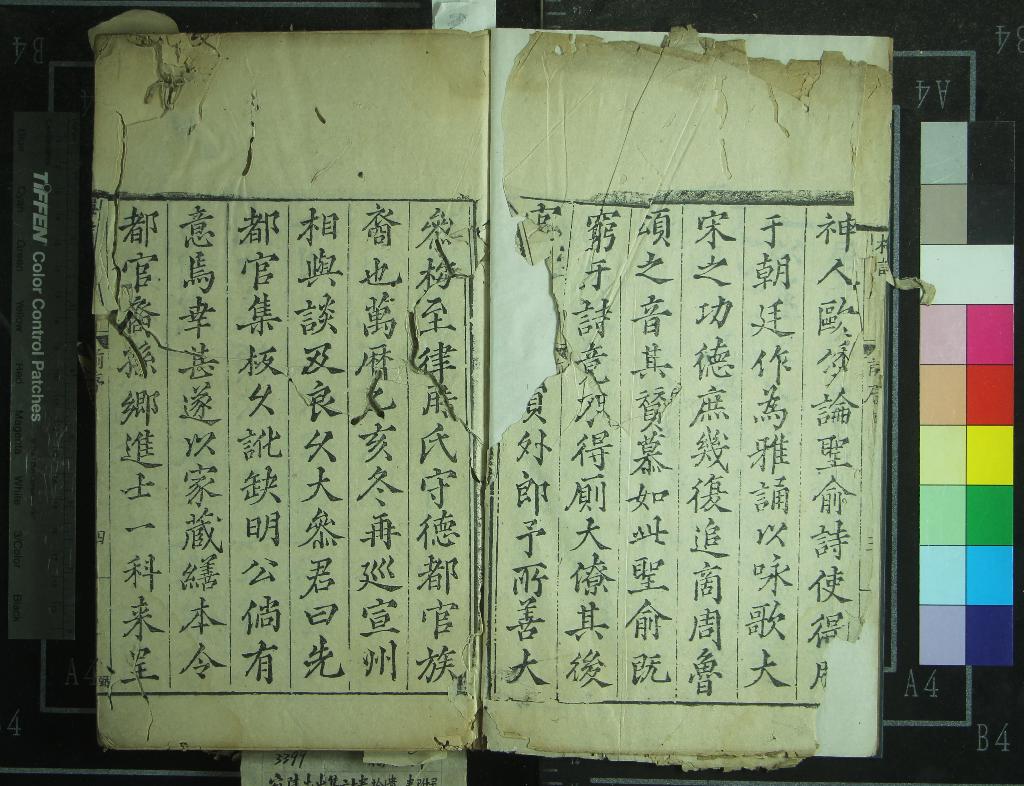 神人歐公論聖俞詩使得用
于朝廷作為雅誦以咏歌大
宋之功德庶幾復追商周魯
頌之音其贊慕如此聖俞既
窮于詩竟乃得廁大僚其後
員外郎予所善大
叅梅至律甫氏守德都官族
裔也萬曆乙亥冬再廵宣州
相與談及良久大叅君曰先
都官集板久訛缺明公倘有
意焉幸甚遂以家藏繕本令
都官裔孫鄉進士一科来呈
四
TIFFEN Color Control Patches
Blue Cyan Green Yellow Red Magenta White 3/Color Black
A4
B4
A4
B4
A4
B4
3397